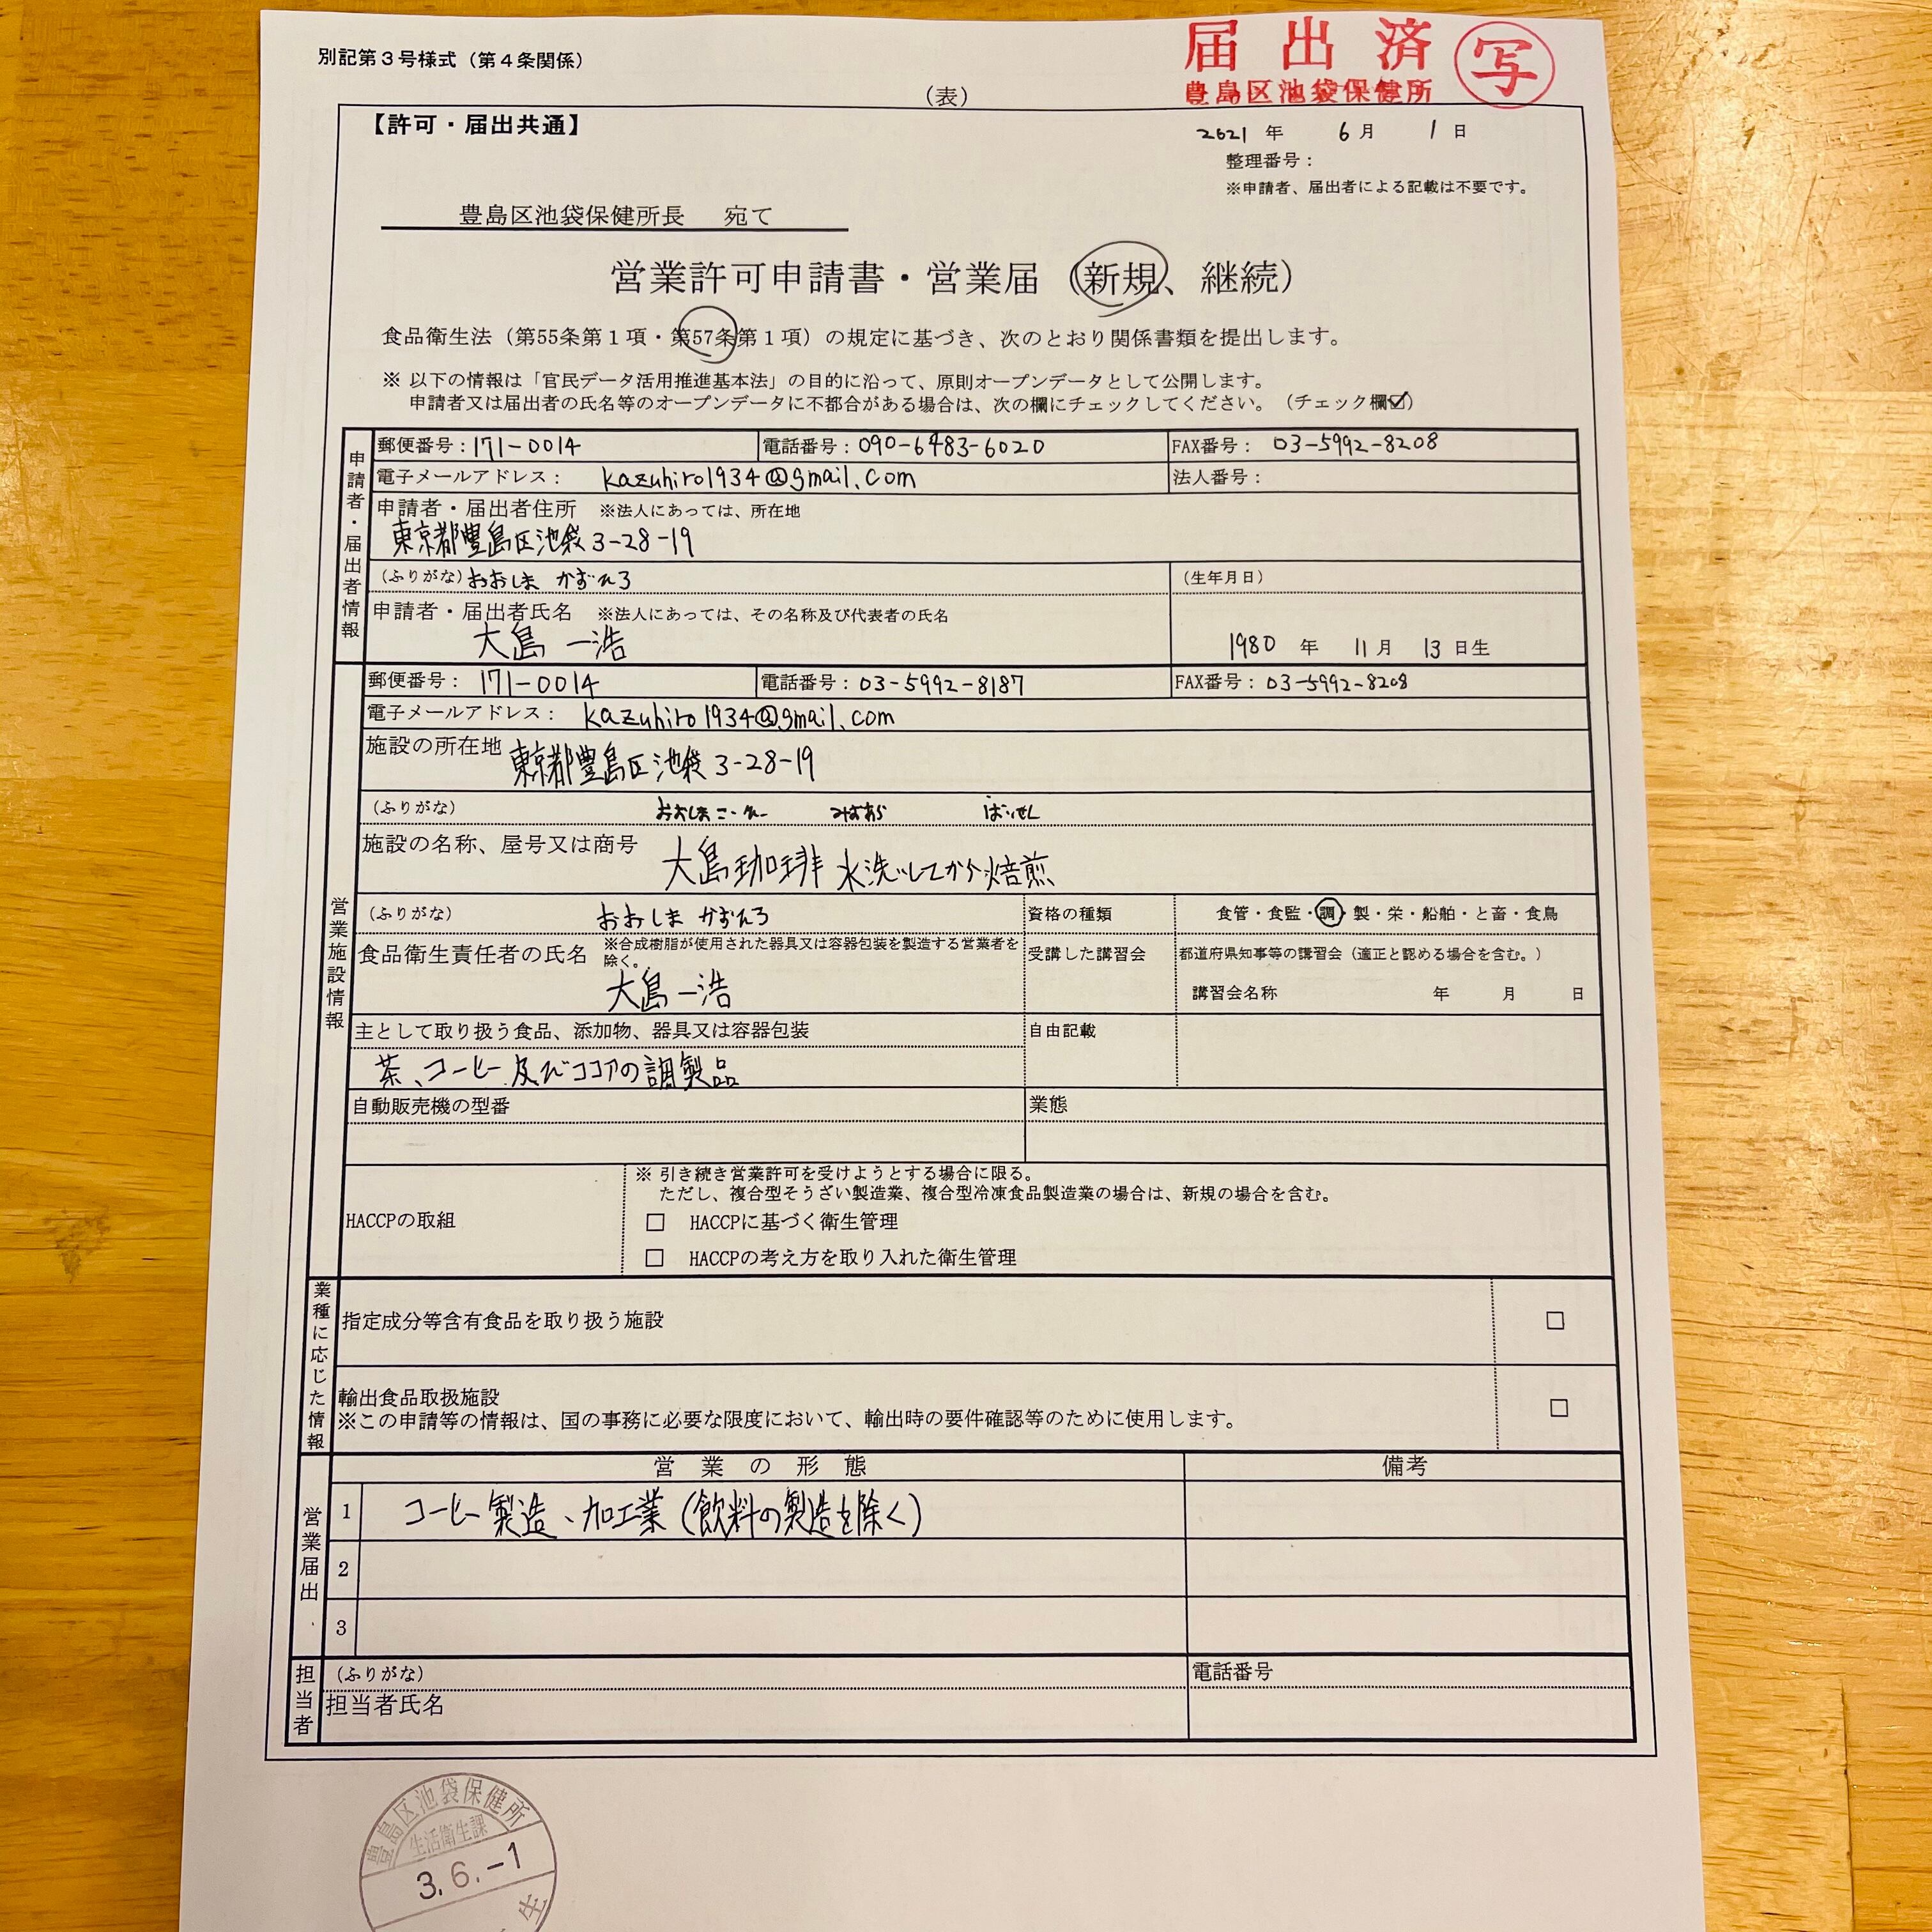 届出済 写
豊島区池袋保健所
別記第3号様式（第4条関係）
（表）
【許可・届出共通】
2021 年 6 月 1 日
整理番号：
※申請者、届出者による記載は不要です。
豊島区池袋保健所長 宛て
営業許可申請書・営業届（新規、継続）
食品衛生法（第55条第1項・第57条第1項）の規定に基づき、次のとおり関係書類を提出します。
※ 以下の情報は「官民データ活用推進基本法」の目的に沿って、原則オープンデータとして公開します。
申請者又は届出者の氏名等のオープンデータに不都合がある場合は、次の欄にチェックしてください。（チェック欄☑）
申請者・届出者情報
郵便番号：171-0014 電話番号：090-6483-6020 FAX番号： 03-5992-8208
電子メールアドレス： kazuhiro1934@gmail.com 法人番号：
申請者・届出者住所 ※法人にあっては、所在地
東京都豊島区池袋3-28-19
（ふりがな）おおしま かずひろ （生年月日）
申請者・届出者氏名 ※法人にあっては、その名称及び代表者の氏名
大島 一浩 1980 年 11 月 13 日生
営業施設情報
郵便番号： 171-0014 電話番号：03-5992-8187 FAX番号：03-5992-8208
電子メールアドレス： kazuhiro1934@gmail.com
施設の所在地 東京都豊島区池袋3-28-19
（ふりがな） おおしまこーひー みずあら ばいせん
施設の名称、屋号又は商号
大島珈琲 水洗いしてから焙煎
（ふりがな） おおしま かずひろ 資格の種類 食管・食監・調・製・栄・船舶・と畜・食鳥
食品衛生責任者の氏名 ※合成樹脂が使用された器具又は容器包装を製造する営業者を除く。 受講した講習会 都道府県知事等の講習会（適正と認める場合を含む。）
大島 一浩 講習会名称 年 月 日
主として取り扱う食品、添加物、器具又は容器包装 自由記載
茶、コーヒー及びココアの調製品
自動販売機の型番 業態
HACCPの取組
※ 引き続き営業許可を受けようとする場合に限る。
ただし、複合型そうざい製造業、複合型冷凍食品製造業の場合は、新規の場合を含む。
□ HACCPに基づく衛生管理
□ HACCPの考え方を取り入れた衛生管理
業種に応じた情報
指定成分等含有食品を取り扱う施設 □
輸出食品取扱施設
※この申請等の情報は、国の事務に必要な限度において、輸出時の要件確認等のために使用します。 □
営業届出
営業の形態 備考
1 コーヒー製造、加工業（飲料の製造を除く）
2
3
担当者
（ふりがな） 電話番号
担当者氏名
豊島区池袋保健所
生活衛生課
3.6.-1
生